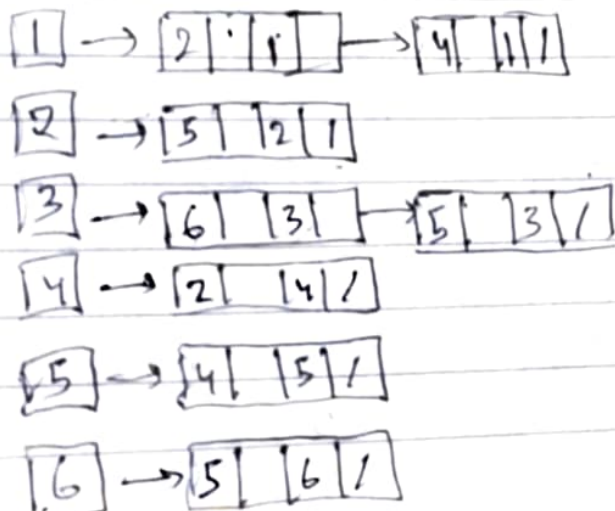 1 → 2 1 → 4 1 /
2 → 5 2 /
3 → 6 3 → 5 3 /
4 → 2 4 /
5 → 4 5 /
6 → 5 6 /